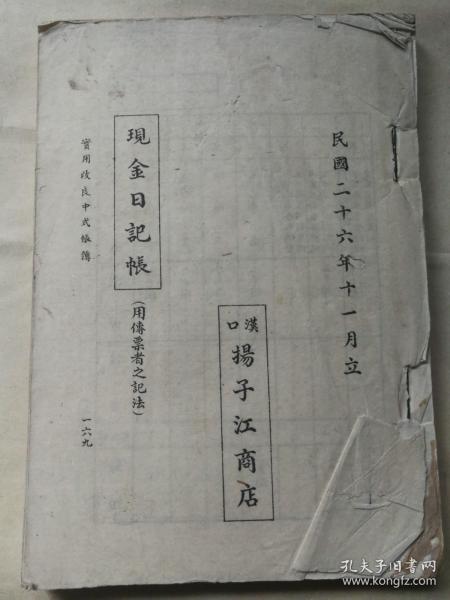 民國二十六年十一月立
漢口
揚子江商店
現金日記帳
(用傳票者之記法)
實用改良中式帳簿
一六九
孔夫子旧书网
www.kongfz.com